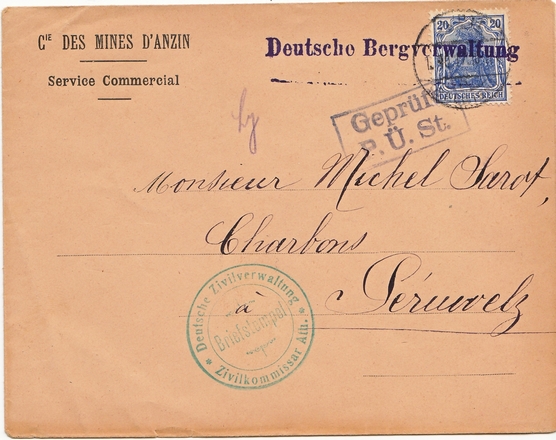 Cie DES MINES D'ANZIN
Service Commercial
Deutsche Bergverwaltung
20 20
DEUTSCHES REICH
Geprüft
P. Ü. St.
Monsieur Michel Sarot,
Charbons
à Péruwelz
* Deutsche Zivilverwaltung *
Zivilkommissar Ath.
Briefstempel